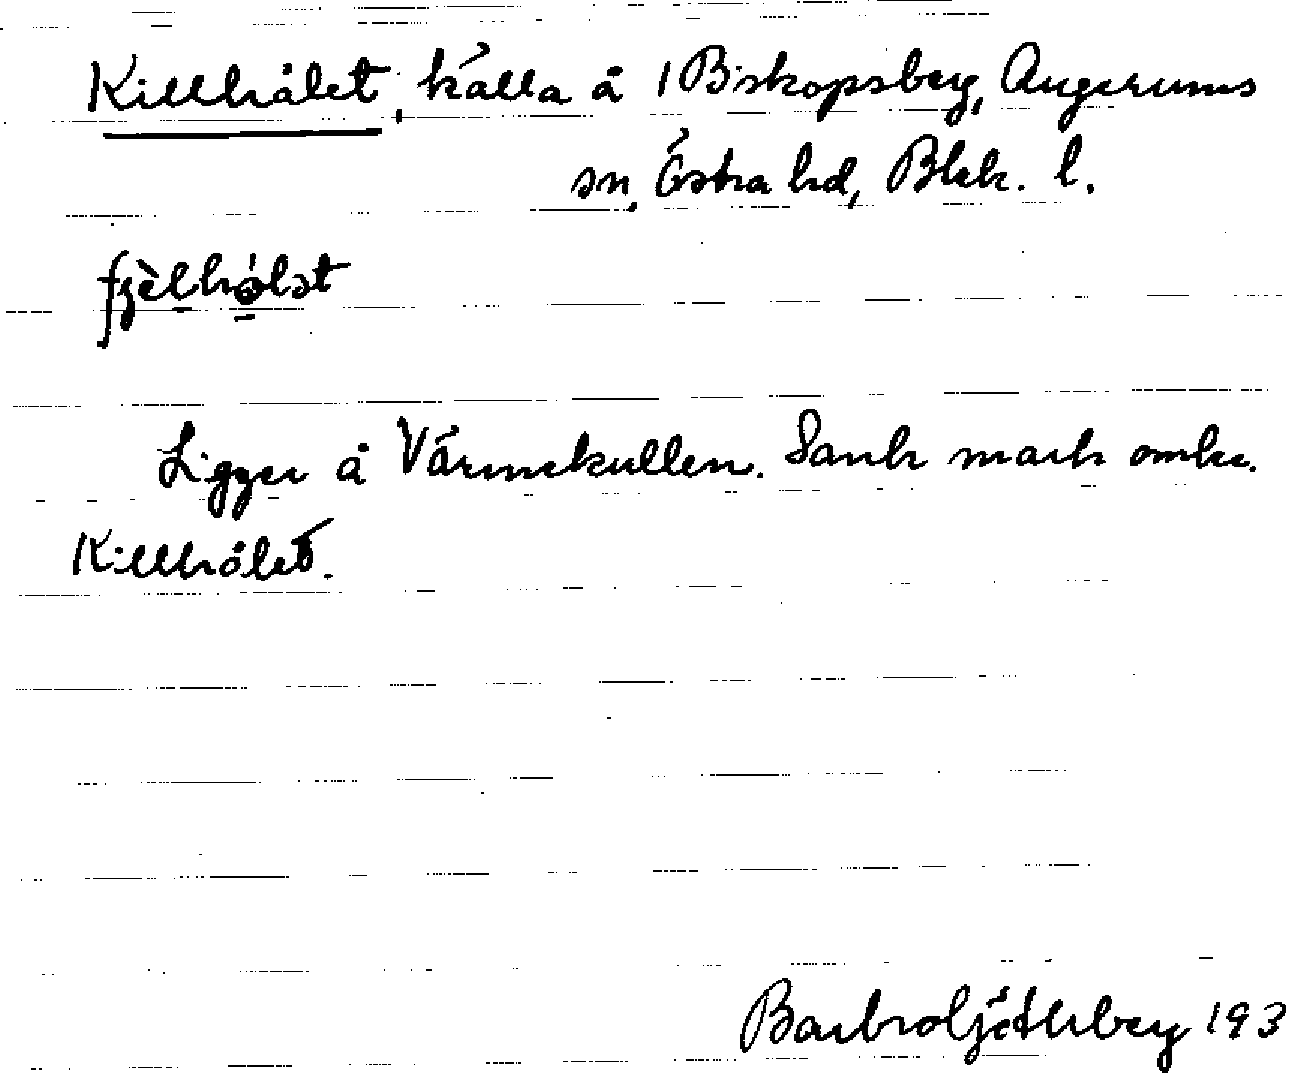 Killhålet, källa å 1 Biskopsberg, Augerums
sn, Östra hd, Blek. l.
Ligger å Värmekullen. Sank mark omkr.
Killhålet.
193